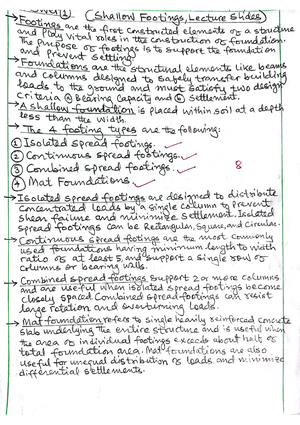 (Shallow Footings, Lecture Slides)
→ Footings are the first constructed elements of a structure
and play vital roles in the construction of foundation.
The purpose of footings is to support the foundation
and prevent settling.
→ Foundations are the structural elements like beams
and columns designed to safely transfer building
loads to the ground and must satisfy two design
criteria ⓐ Bearing Capacity and ⓑ Settlement.
→ A shallow foundation is placed within soil at a depth
less than the width.
→ The 4 footing types are the following:
① Isolated spread footings.
② Continuous spread footings.
③ Combined spread footings.
④ Mat Foundations.
8
→ Isolated spread footings are designed to distribute
concentrated loads by a single column to prevent
shear failure and minimize settlement. Isolated
spread footings can be Rectangular, Square, and Circular.
→ Continuous spread footings are the most commonly
used foundations having minimum length to width
ratio of at least 5, and support a single row of
columns or bearing walls.
→ Combined spread footings support 2 or more columns
and are useful when isolated spread footings become
closely spaced. Combined spread footings can resist
large rotation and overturning loads.
→ Mat foundation refers to single heavily reinforced concrete
slab underlying the entire structure and is useful when
the area of individual footings exceeds about half of
total foundation area. Mat foundations are also
useful for unequal distribution of loads and minimize
differential settlements.